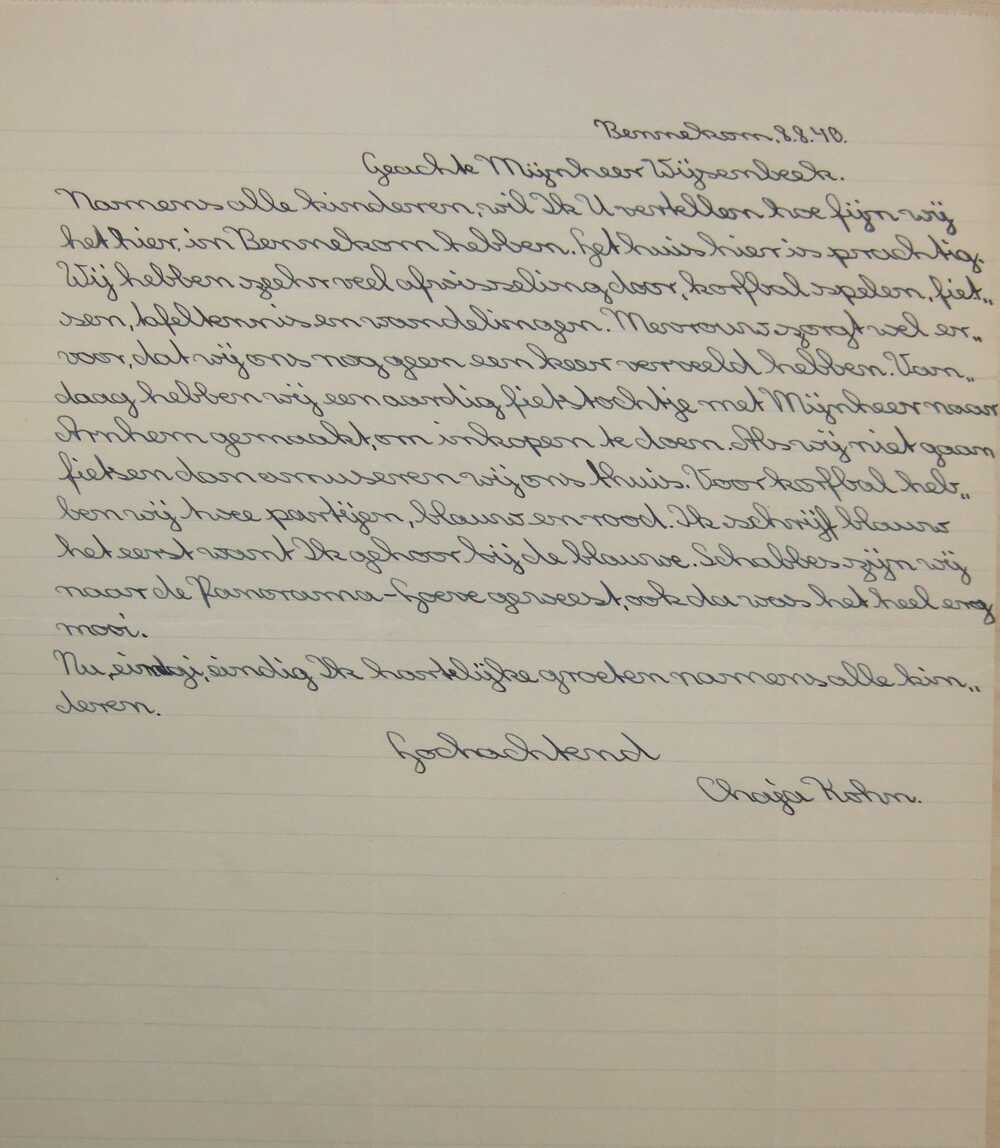 Bennekom, 8.8.40.
Geachte Mijnheer Wijsenbeek.
Namens alle kinderen, wil Ik U vertellen hoe fijn wij
het hier, in Bennekom hebben. Het huis hier is prachtig.
Wij hebben szehr veel afwisseling door, korfbal spelen, fiet„
sen, tafeltennis en wandelingen. Mevrouw zorgt wel er„
voor, dat wij ons nog geen een keer verveeld hebben. Van„
daag hebben wij een aardig fietstochtje met Mijnheer naar
Arnhem gemaakt, om inkopen te doen. Als wij niet gaan
fietsen dan amuseren wij ons thuis. Voor korfbal heb„
ben wij twee partijen, blauw en rood. Ik schrijf blauw
het eerst want Ik gehoor bij de blauwe. Schabbes zijn wij
naar de Panorama-Hoeve geweest, ook da was het heel erg
mooi.
Nu, eindig Ik hartelijke groeten namens alle kin„
deren.
Hochachtend
Chaja Kohn.